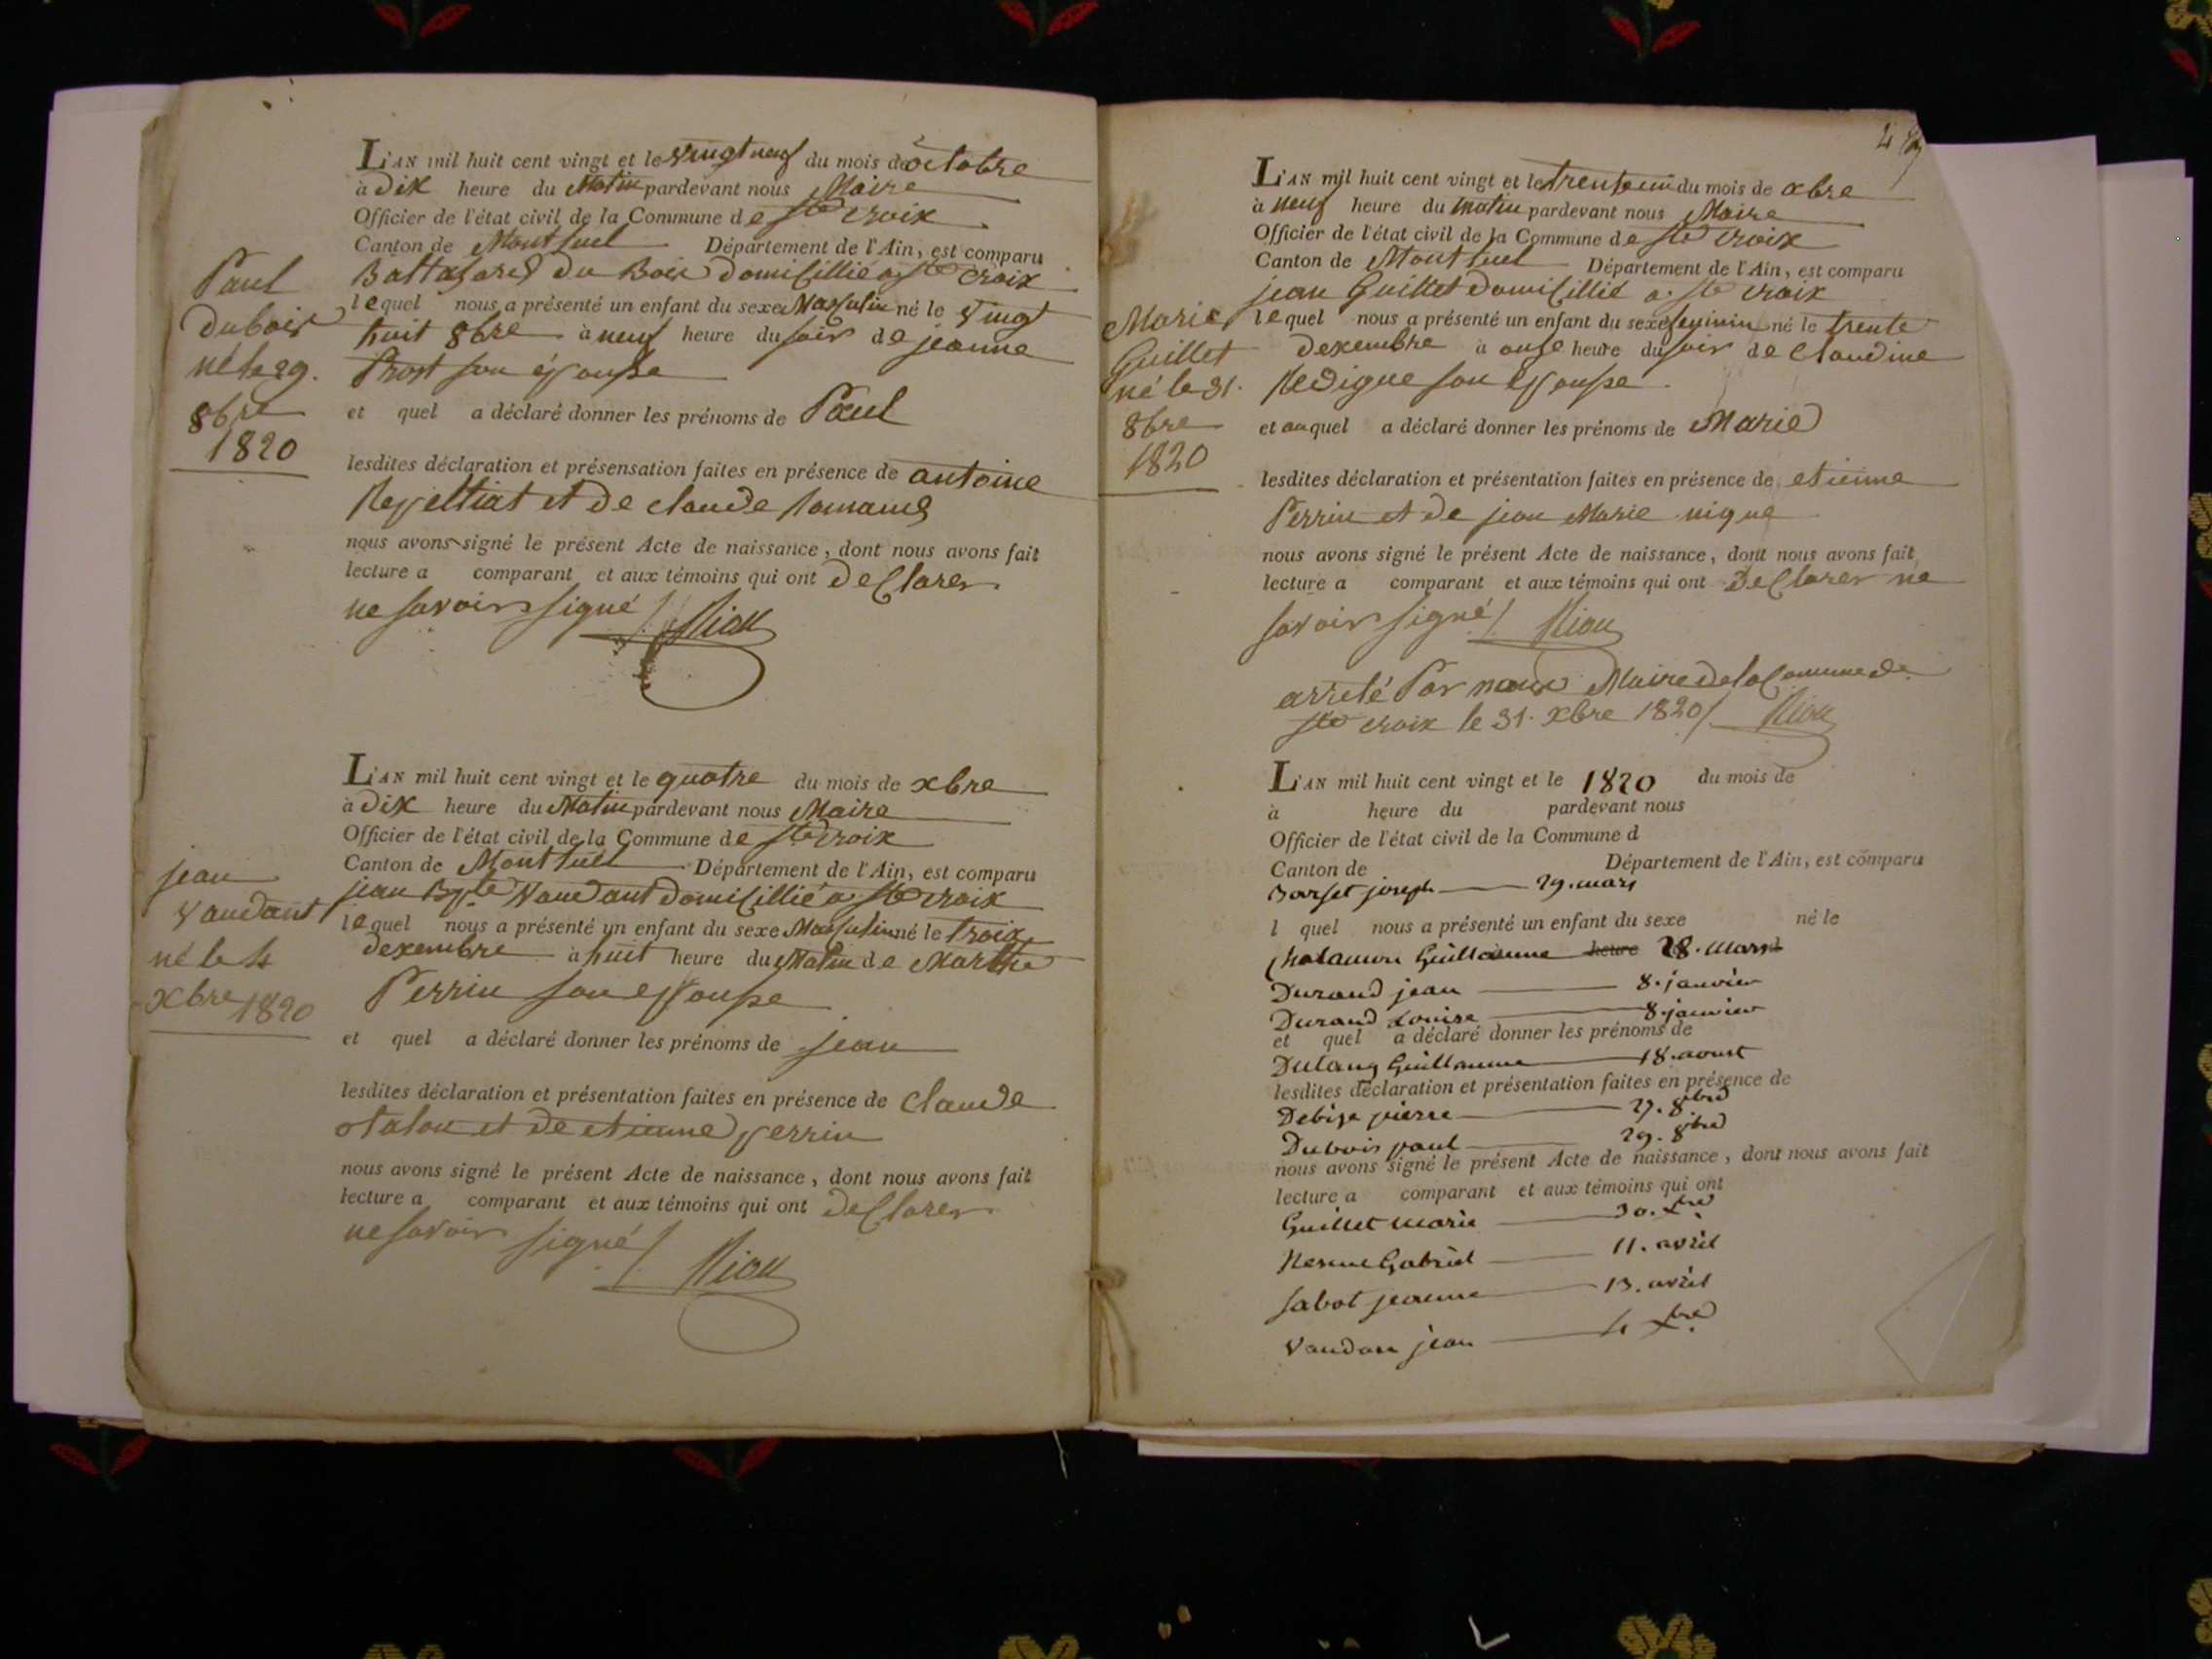 L'AN mil huit cent vingt et le vingt neuf du mois de octobre
à Dix heure du Matin pardevant nous Maire
Officier de l'état civil de la Commune de ste croix
Canton de Montluel Département de l'Ain, est comparu
Baltazard du Bois domicillié a ste croix
lequel nous a présenté un enfant du sexe Masculin né le vingt
huit 8bre à neuf heure du soir de jeanne
Prost son épouse
et quel a déclaré donner les prénoms de Paul
lesdites déclaration et présensation faites en présence de antoine
et de claude
nous avons signé le présent Acte de naissance, dont nous avons fait
lecture a comparant et aux témoins qui ont declarer
ne savoir signé
Paul
dubois
né le 29.
8bre
1820
L'AN mil huit cent vingt et le quatre du mois de xbre
à Dix heure du Matin pardevant nous Maire
Officier de l'état civil de la Commune de ste croix
Canton de Montluel Département de l'Ain, est comparu
jean Bpte Vaudant domicillié a ste croix
lequel nous a présenté un enfant du sexe Masculin né le trois
dexembre à huit heure du Matin de Marthe
Perrin son epouse
et quel a déclaré donner les prénoms de jean
lesdites déclaration et présentation faites en présence de claude
et de etienne perrin
nous avons signé le présent Acte de naissance, dont nous avons fait
lecture a comparant et aux témoins qui ont declarer
ne savoir signé
jean
vaudant
né le 4
xbre 1820
L'AN mil huit cent vingt et le trente un du mois de xbre
à neuf heure du matin pardevant nous Maire
Officier de l'état civil de la Commune de ste croix
Canton de Montluel Département de l'Ain, est comparu
jean Guillet domicillié a ste croix
lequel nous a présenté un enfant du sexe feminin né le trente
dexembre à onse heure du soir de claudine
son epouse
et auquel a déclaré donner les prénoms de Marie
lesdites déclaration et présentation faites en présence de etienne
Perrin et de jean Marie nique
nous avons signé le présent Acte de naissance, dont nous avons fait
lecture a comparant et aux témoins qui ont declarer ne
savoir signé
Marie
Guillet
né le 31.
8bre
1820
arreté Par nous Maire de la Commune de
ste croix le 31. xbre 1820
L'AN mil huit cent vingt et le 1820 du mois de
à heure du pardevant nous
Officier de l'état civil de la Commune d
Canton de Département de l'Ain, est comparu
joseph 29. mars
l quel nous a présenté un enfant du sexe né le
Guillaume heure 28. mars
Durand jean 8. janvier
Durand Louise 8. janvier
et quel a déclaré donner les prénoms de
Guillaume 18. aoust
lesdites déclaration et présentation faites en présence de
Debise pierre 27. 8bre
Dubois paul 29. 8bre
nous avons signé le présent Acte de naissance, dont nous avons fait
lecture a comparant et aux témoins qui ont
Guillet marie 30. xbre
Gabriel 11. avril
Sabot jeanne 13. avril
Vaudan jean 4 xbre